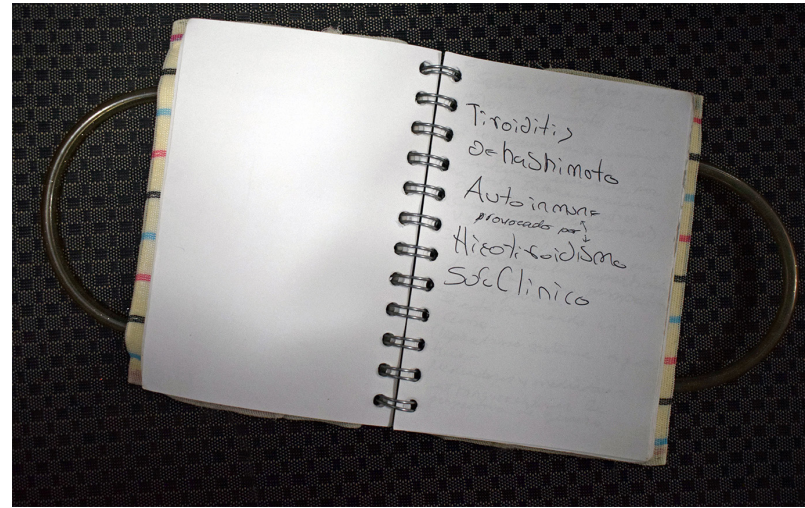 Tiroiditis
De hashimoto
Autoinmune
provocado por
Hipotiroidismo
SubClinico